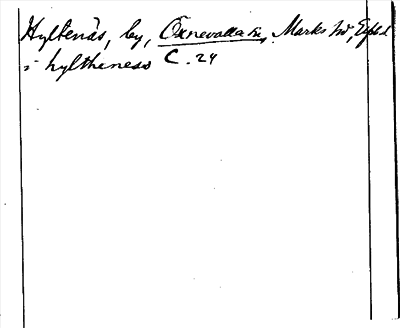 Hyltenäs, by, Öxnevalla sn, Marks hd, Elfsb. l.
i hyltheness C. 24